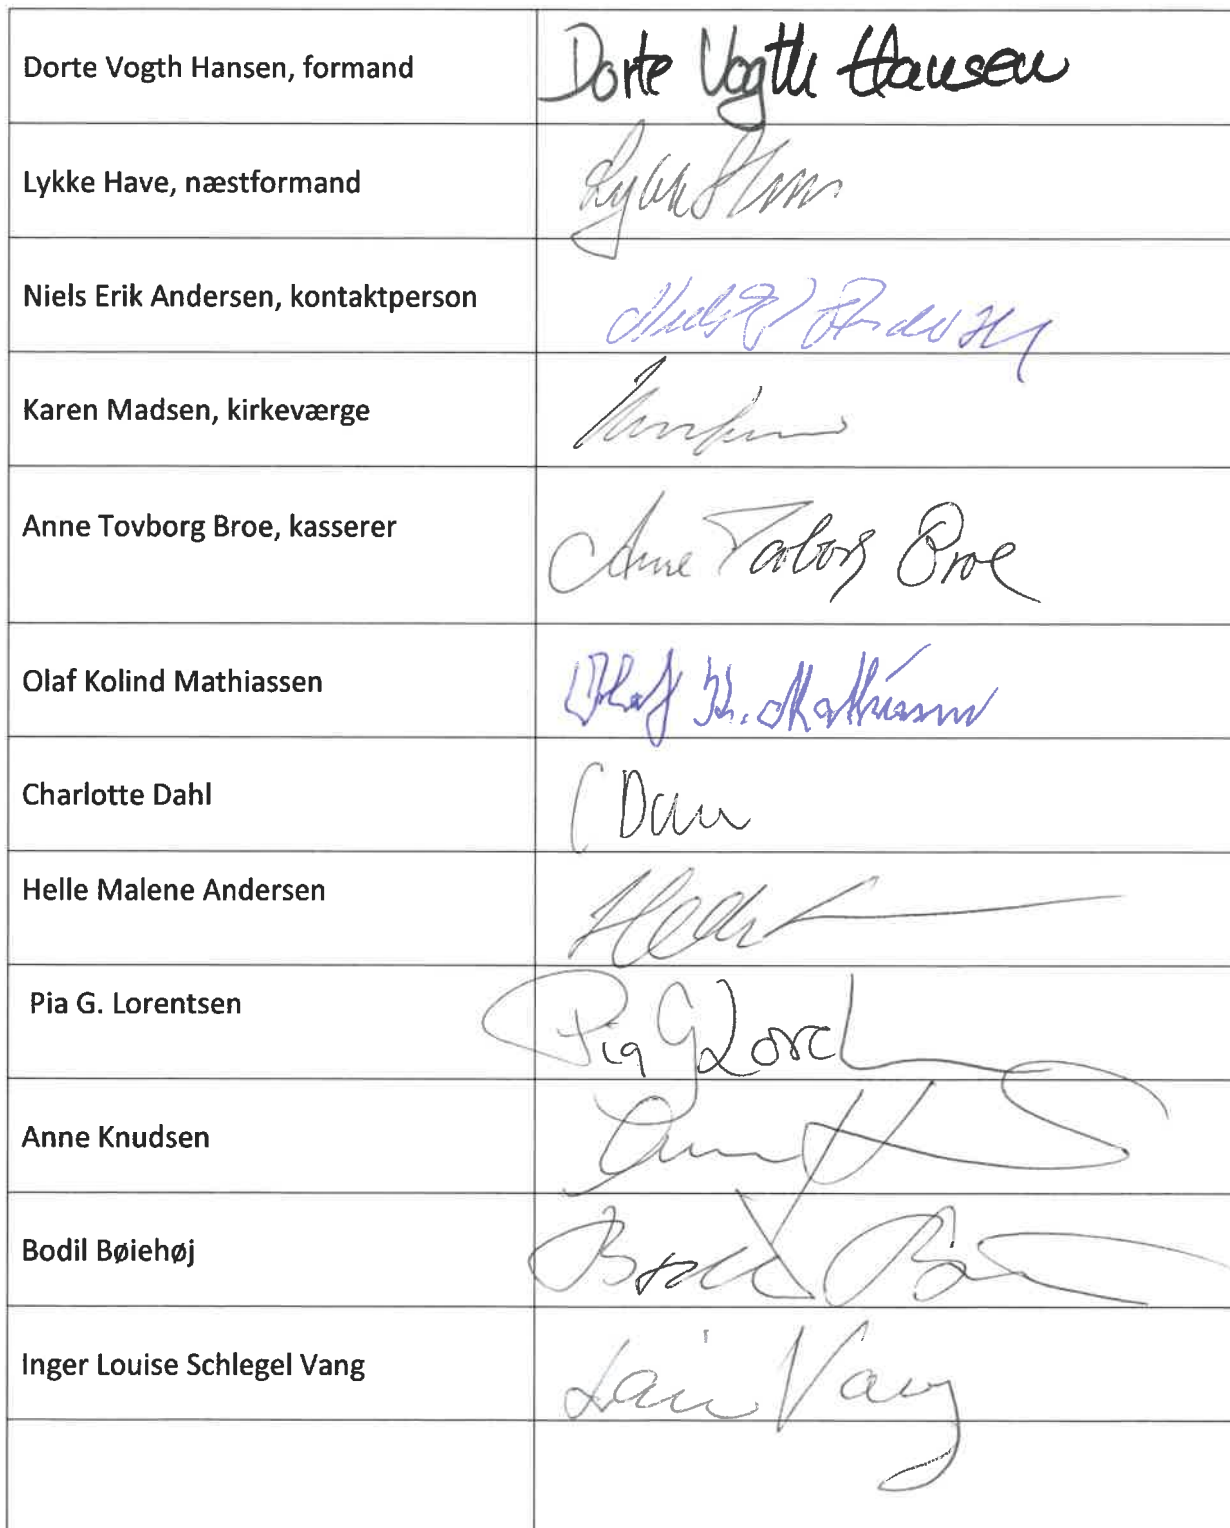 Dorte Vogth Hansen, formand
Dorte Vogth Hansen
Lykke Have, næstformand
Niels Erik Andersen, kontaktperson
Karen Madsen, kirkeværge
Anne Tovborg Broe, kasserer
Anne Tovborg Broe
Olaf Kolind Mathiassen
Olaf K. Mathiassen
Charlotte Dahl
Helle Malene Andersen
Pia G. Lorentsen
Pia G
Anne Knudsen
Bodil Bøiehøj
Inger Louise Schlegel Vang
Vang